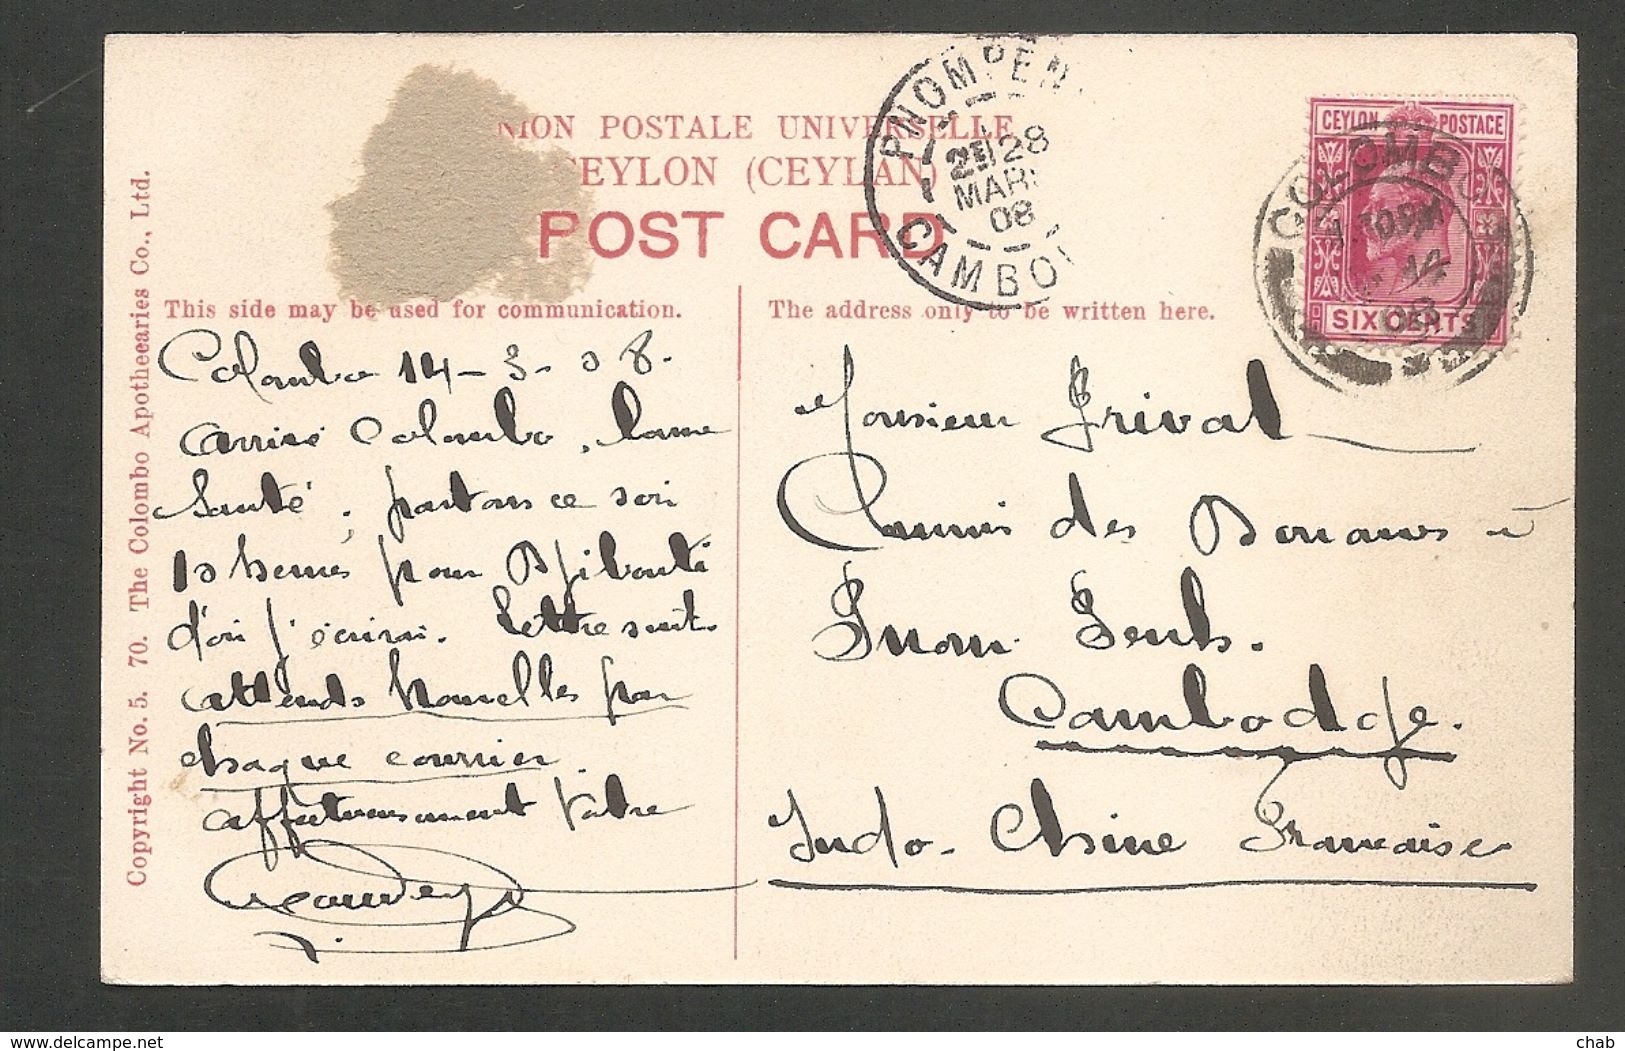 NION POSTALE UNIVERSELLE
CEYLON (CEYLAN)
POST CARD
This side may be used for communication.
The address only to be written here.
Copyright No. 5. 70. The Colombo Apothecaries Co., Ltd.
PNOMPENH
28
MARS
08
CAMBO
CEYLON POSTAGE
SIX CENTS
COLOMBO
14
08
Colombo 14 - 3 - 08.
arrivé Colombo, bonne
Santé, partons ce soir
10 heures pour Djibouti
d'où j'écrirai. Lettre suit.
attends nouvelles par
chaque courrier
affectueusement Votre
Monsieur Frival
Commis des Douanes à
Pnom Penh.
Cambodge.
Indo-Chine Française
delcampe.net
chab